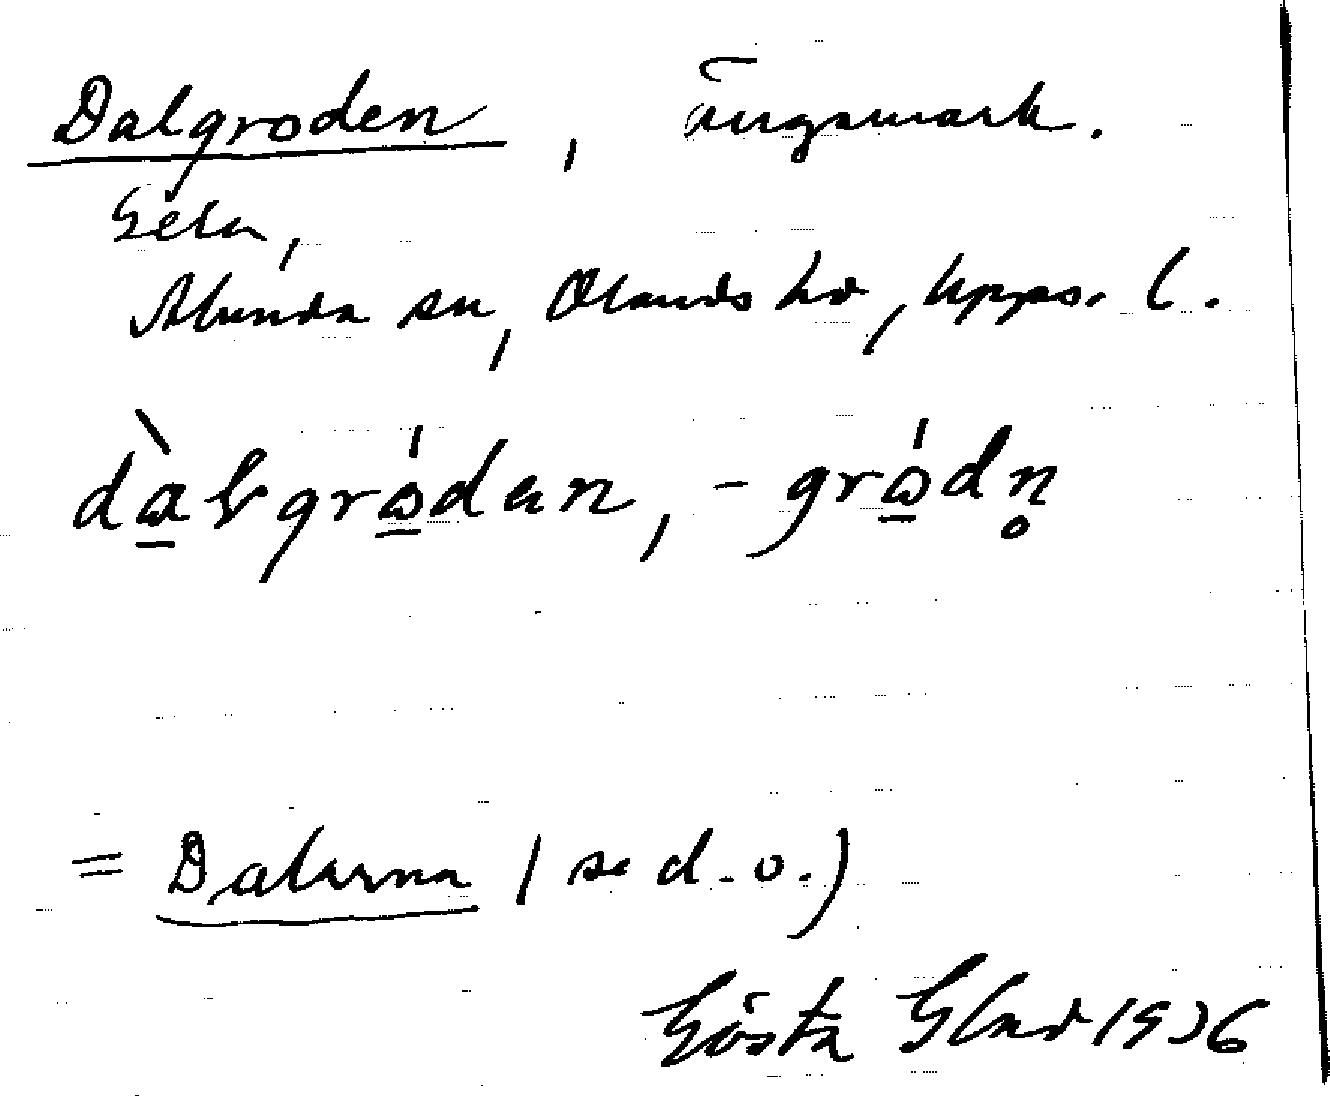 Dalgroden, ängsmark.
Gela,
Alunda sn, Olands hd, Upps. l.
dàlgródan, -gródn̥
= Dalarna (se d. o.)
Gösta Glad 1936